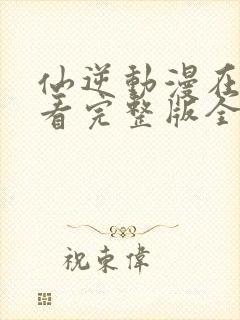 仙逆動漫在
看完整版全
祝東偉